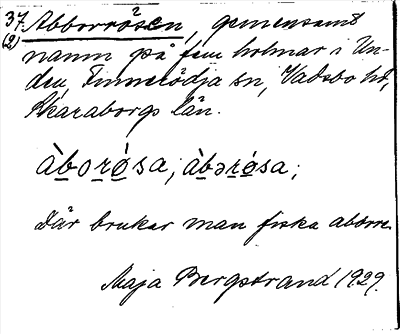 37. Abborrösen, gemensamt
(2) namn på fem holmar i Un-
den, Finnerödja sn, Vadsbo hd,
Skaraborgs län.
àborósa, àbərósa;
Där brukar man fiska aborre.
Maja Bergstrand 1929.